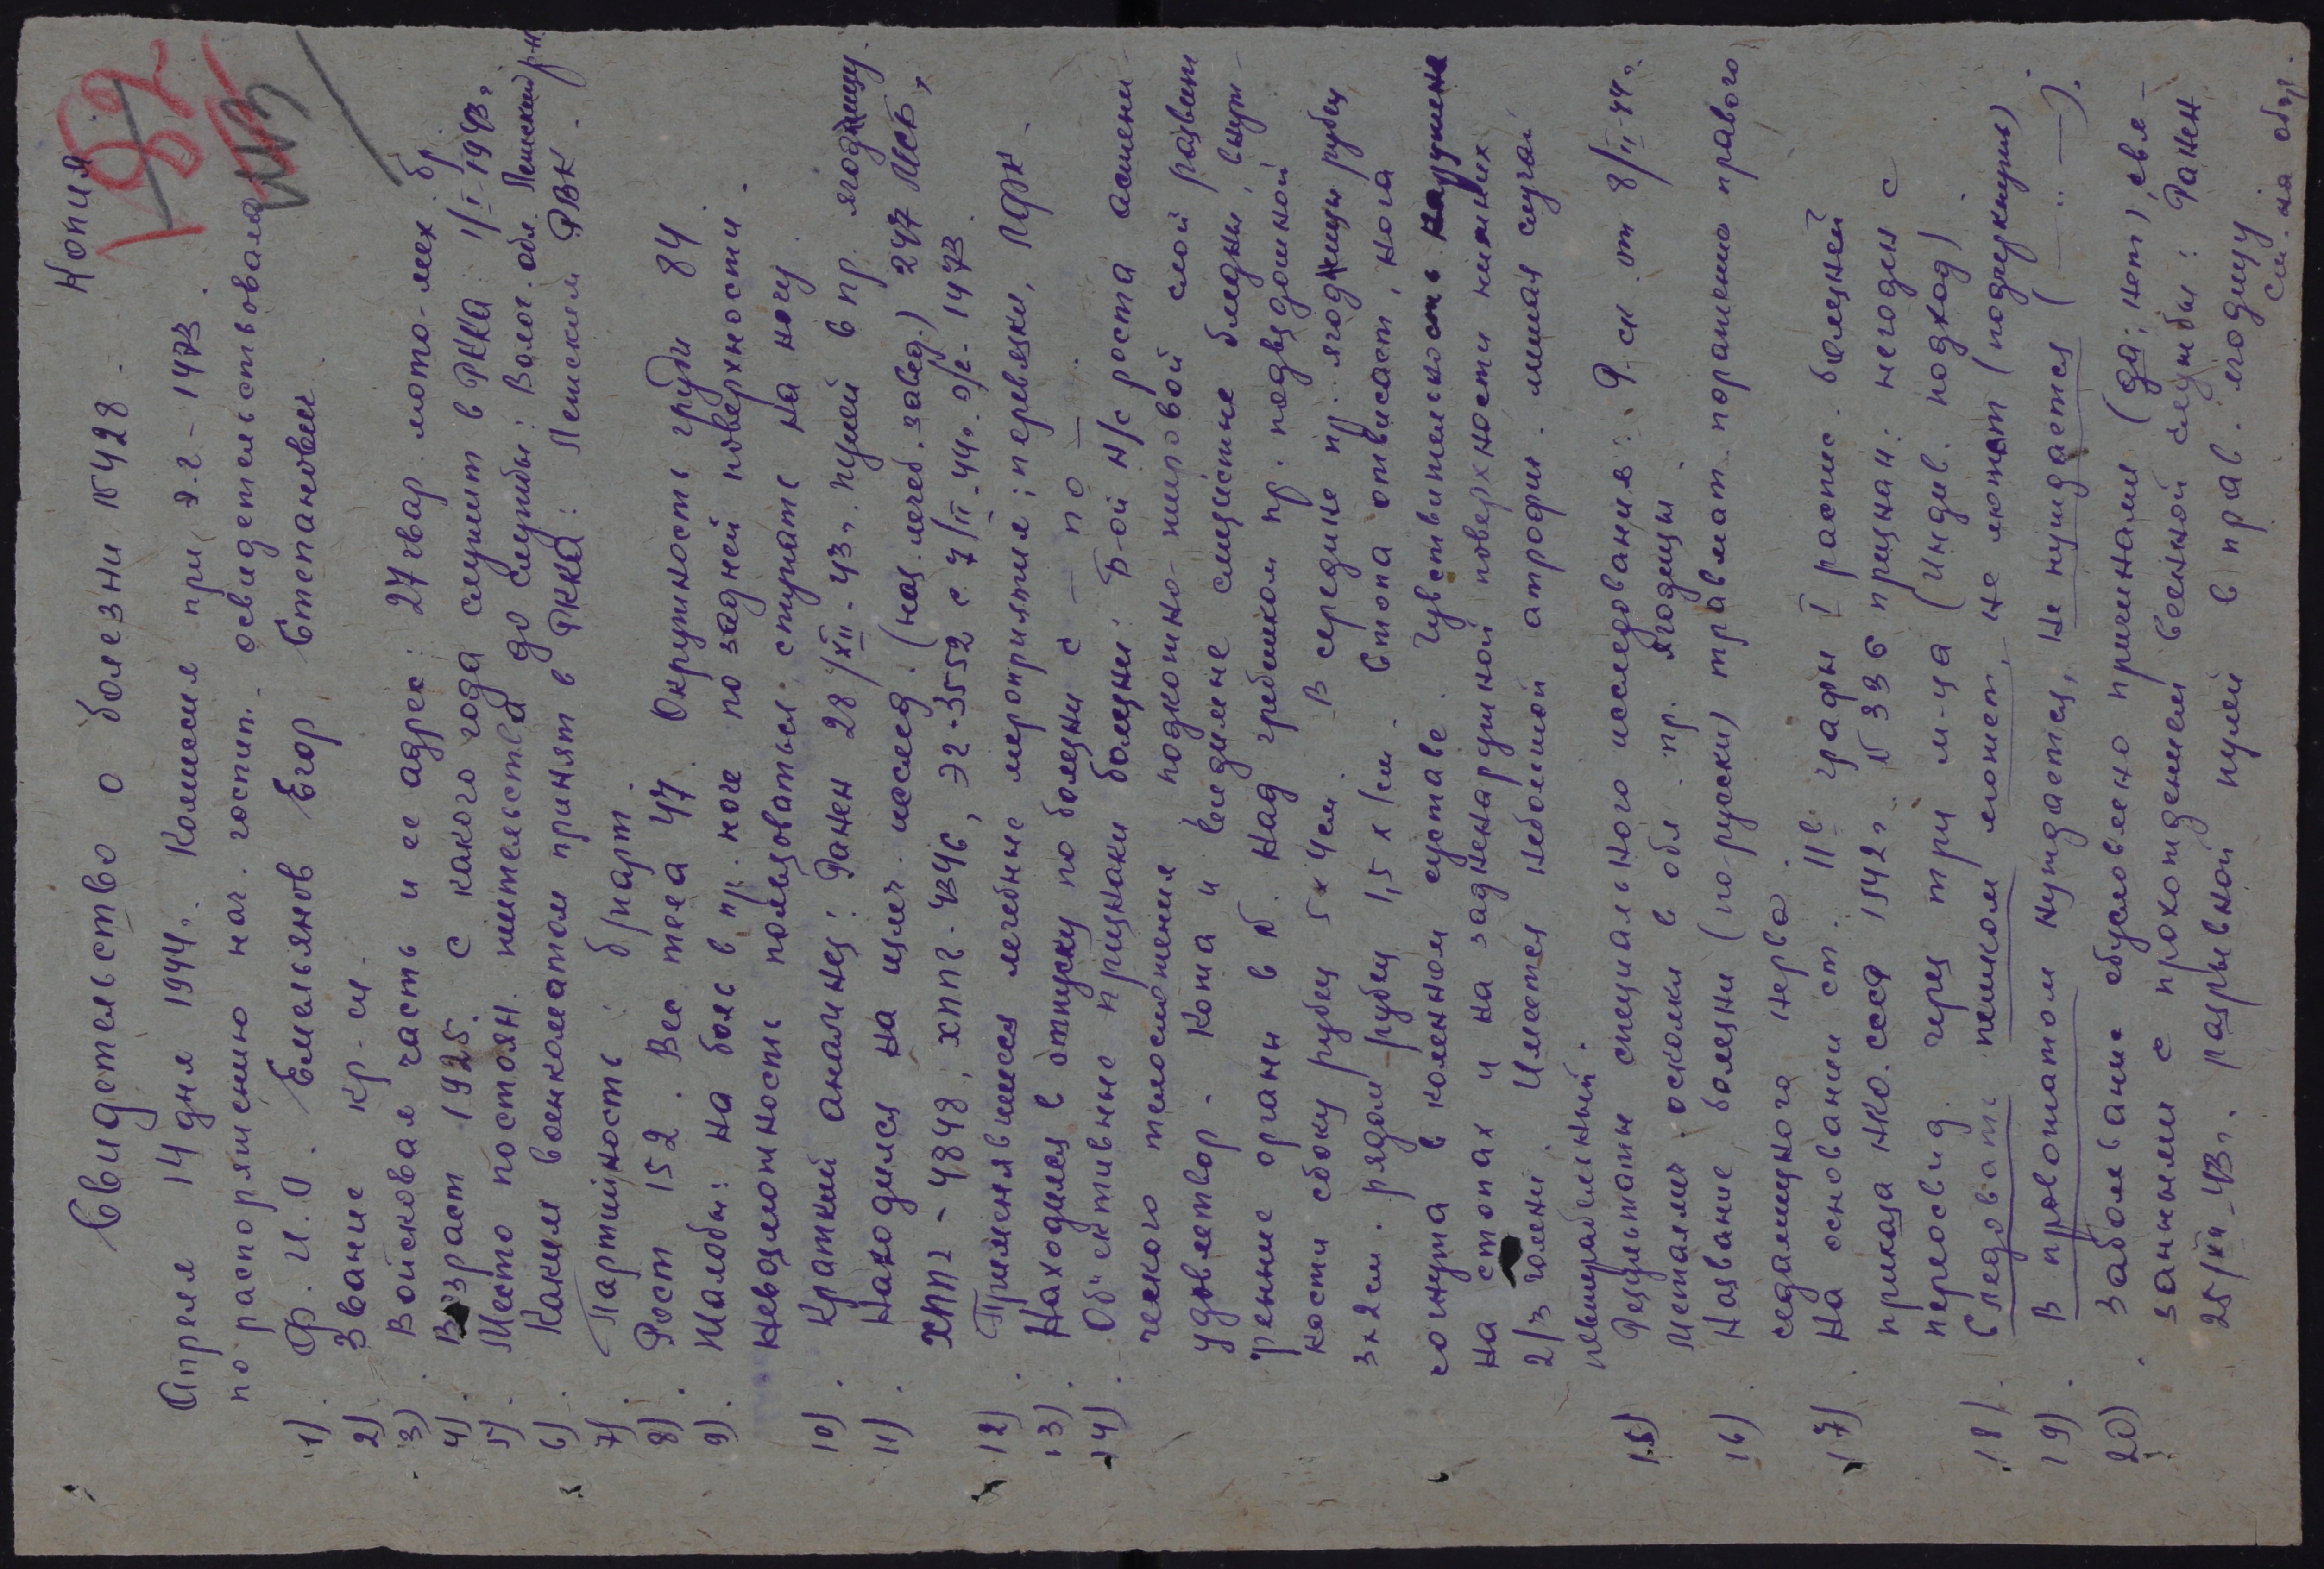 Копия
Свидетельство о болезни №428.
Апреля 14 дня 1944г. Комиссия при э.г.-1473.
по распоряжению нач. госпит. освидетельствовала
1). Ф.И.О. Емельянов Егор Степанович
2) Звание кр-ец.
3). Войсковая часть и ее адрес: 27 гвар. мото-мех бр.
4). Возраст 1925. С какого года служит в РККА: 1/I-1943г.
5). Место постоян. жительства до службы: Волог. обл. Ленский р-н
6). Каким военкоматом принят в РККА: Ленским РВК.
7). Партийность: б/парт.
8). Рост 152. Вес тела 47. Окружность груди 84
9). Жалобы: На боль в пр. ноге по задней поверхности.
Невозможность пользоваться, ступать на ногу.
10). Краткий анамнез: Ранен 28/XII-43г. пулей в пр. ягодицу.
11). Находился на излеч. исслед. (наз. лечеб. завед.) 247 МСБ,
ХППГ-4848, ХППГ-4346, ЭГ-3552 с 7/II-44г. э/г-1473.
12). Применявшиеся лечебные мероприятия: перевязки, ЛФК.
13). Находился в отпуску по болезни с — по —.
14). Объективные признаки болезни: Б-ой н/с роста астени-
ческого телосложения подкожно-жировой слой развит
удовлетвор. Кожа и видимые слизистые бледны, внут-
ренние органы в N. Над гребешком пр. подвздошной
кости сбоку рубец 5х4см. В середине пр. ягодицы рубец
3х2см. рядом рубец 1,5х1см. Стопа отвисает, нога
согнута в коленном суставе. Чувствительность нарушена
на стопах и на задненаружной поверхности нижних
2/3 голени. Имеется небольшой атрофия. мышц
15) Результаты специального исследования: Р-ск. от 8/II-44г.
Металлич. осколки в обл. пр. ягодицы.
16). Название болезни (по-русски) травмат. поражение правого
седалищного нерва.
17). На основании ст. 11в графы I распис. болезней
приказа НКО.СССР 1942г. №336 признан: негоден с
переосвид. через три м-ца (индив. подход).
18). Следовать пешком может, не может (подчеркнуть).
19). В провожатом нуждается, не нуждается (—"—).
20). Заболевание обусловлено причинами (да; нет), свя-
занными с прохождением военной службы: Ранен
25/XII-43г. разрывной пулей в прав. ягодицу
см. на обор.